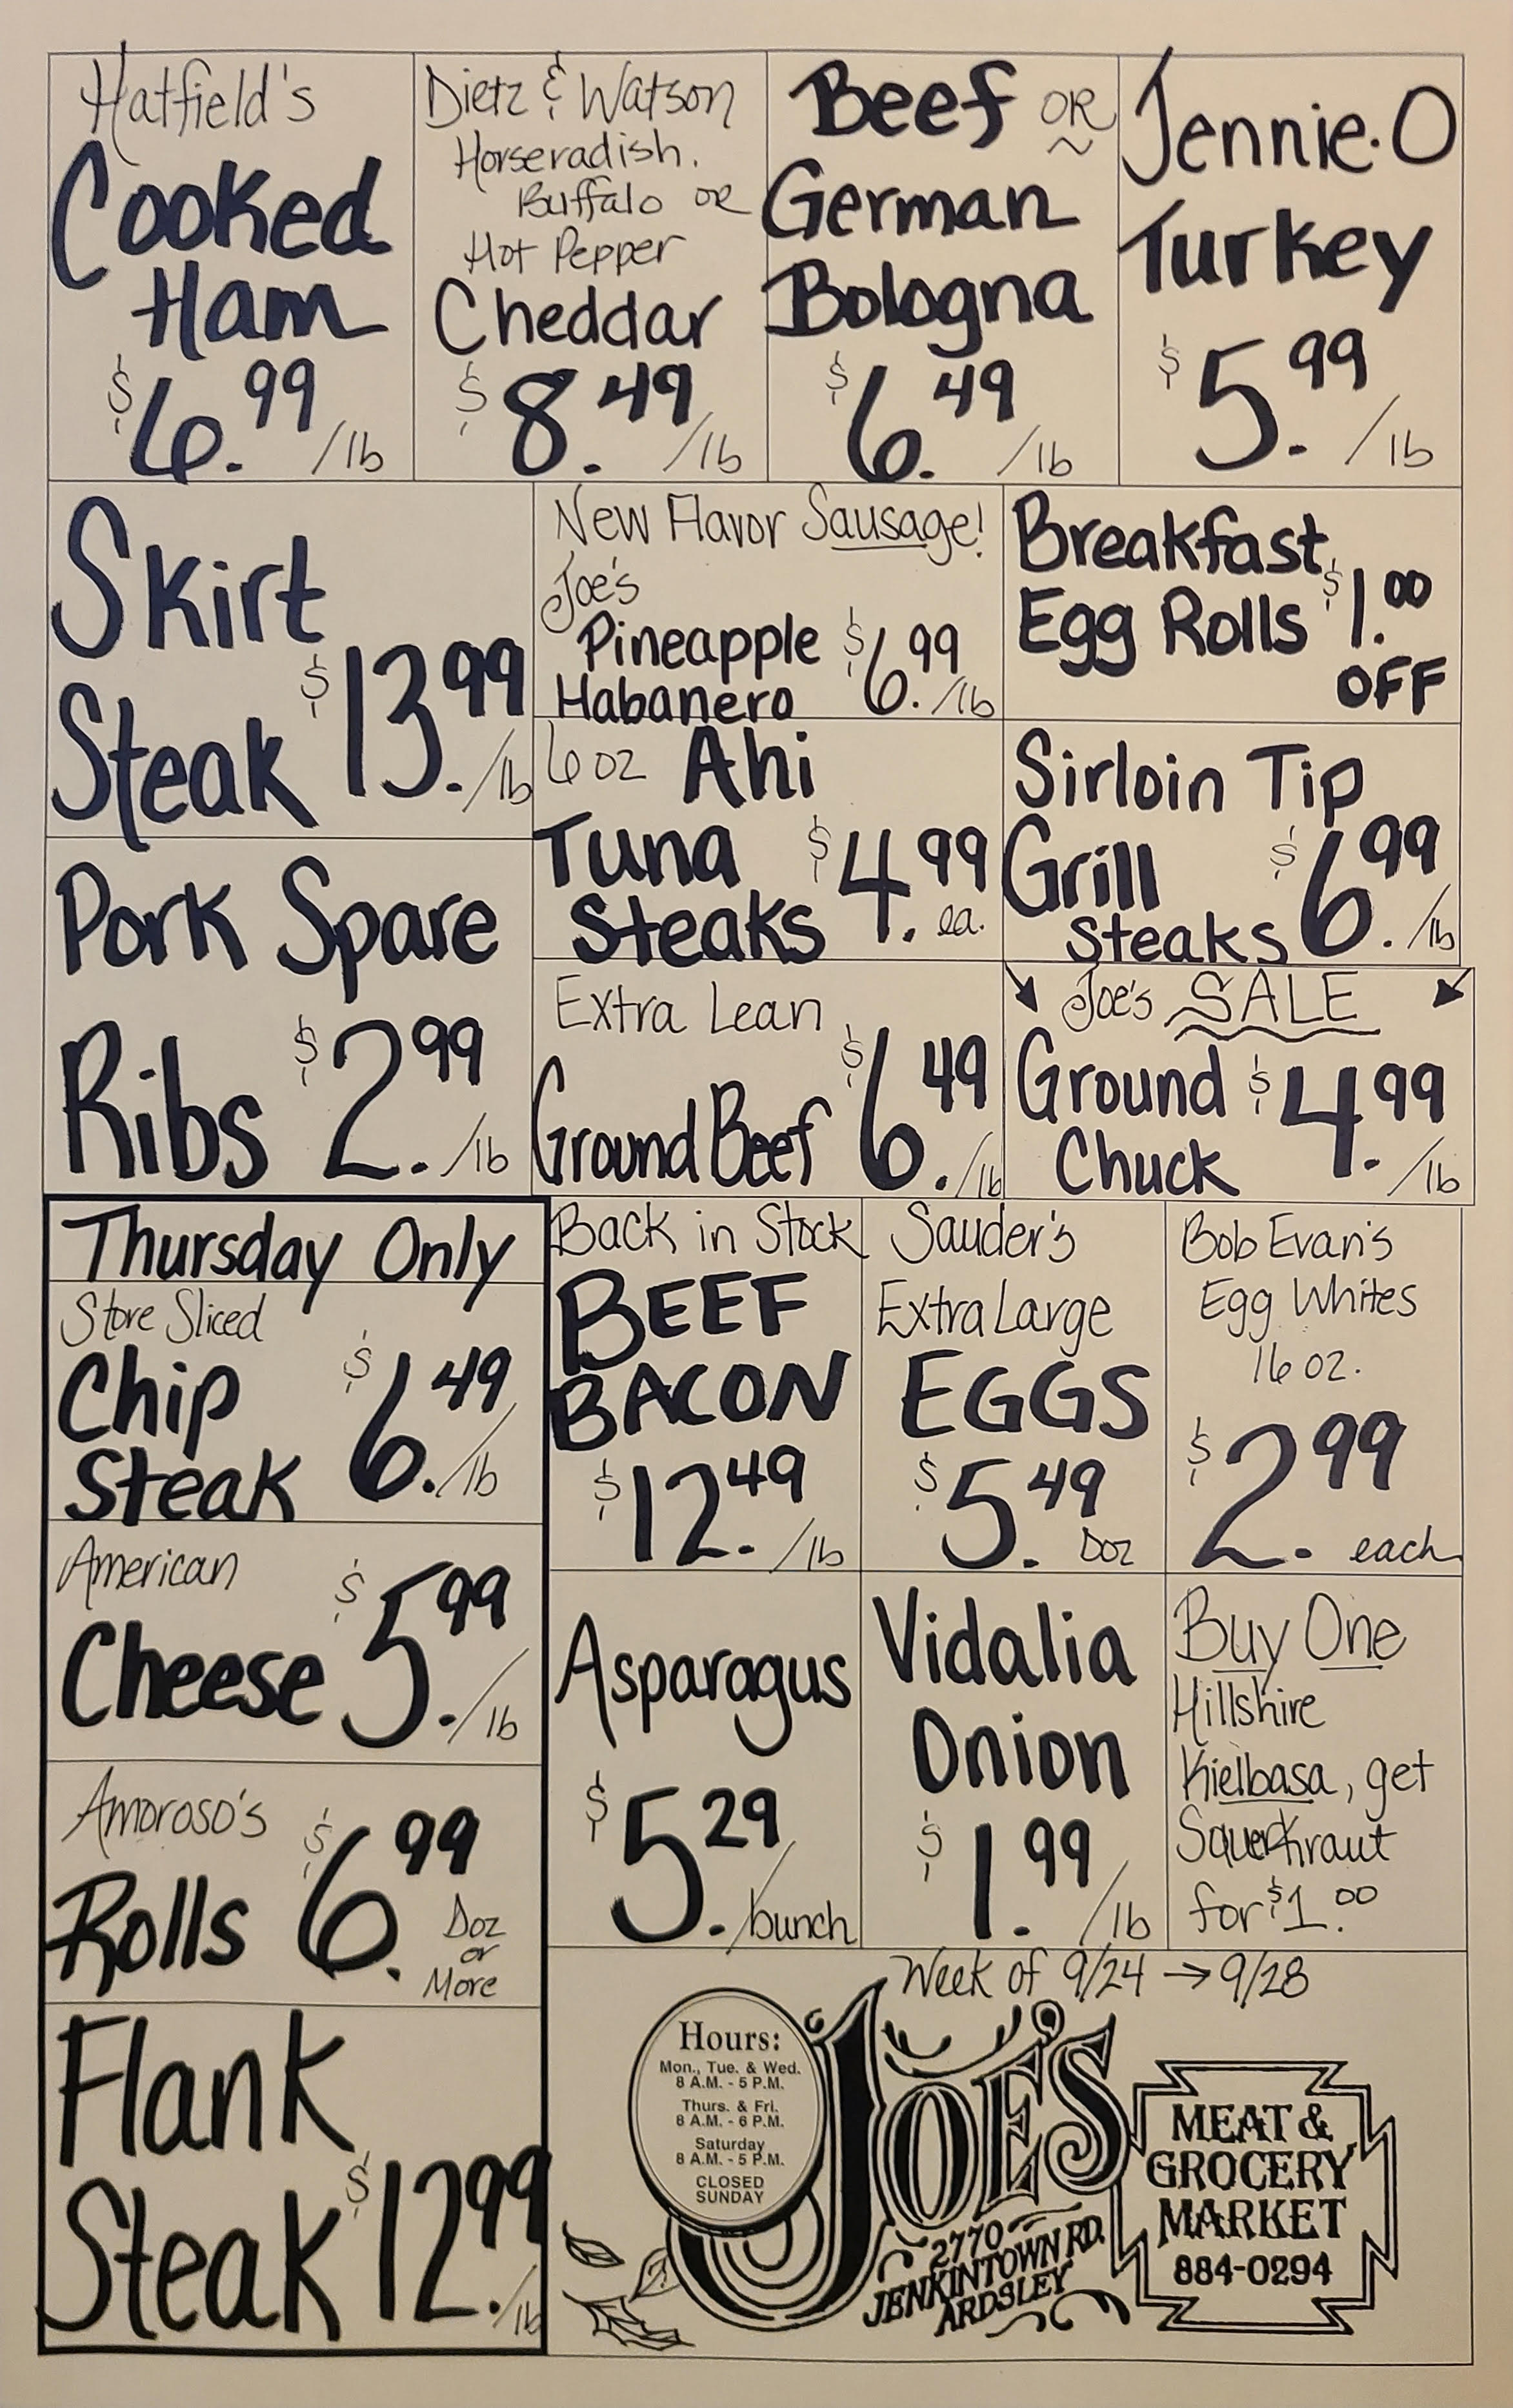 Hatfield's
Cooked
Ham
$6.99/lb
Dietz & Watson
Horseradish,
Buffalo or
Hot Pepper
Cheddar
$8.49/lb
Beef OR
German
Bologna
$6.49/lb
Jennie.O
Turkey
$5.99/lb
Skirt
Steak $13.99/lb
New Flavor Sausage!
Joe's
Pineapple
Habanero $6.99/lb
Breakfast
Egg Rolls $1.00
OFF
6 oz Ahi
Tuna
Steaks $4.99 ea.
Sirloin Tip
Grill
Steaks $6.99/lb
Pork Spare
Ribs $2.99/lb
Extra Lean
Ground Beef $6.49/lb
Joe's SALE
Ground
Chuck $4.99/lb
Thursday Only
Store Sliced
Chip
Steak $6.49/lb
American
Cheese $5.99/lb
Amoroso's
Rolls $6.99 Doz
or
More
Flank
Steak $12.99/lb
Back in Stock
BEEF
BACON
$12.49/lb
Sauder's
Extra Large
EGGS
$5.49 Doz
Bob Evan's
Egg Whites
16 oz.
$2.99 each
Asparagus
$5.29/bunch
Vidalia
Onion
$1.99/lb
Buy One
Hillshire
Kielbasa, get
Squerkraut
for $1.00
Week of 9/24 → 9/28
Hours:
Mon., Tue. & Wed.
8 A.M. - 5 P.M.
Thurs. & Fri.
8 A.M. - 6 P.M.
Saturday
8 A.M. - 5 P.M.
CLOSED
SUNDAY
JOE'S
2770
JENKINTOWN RD.
ARDSLEY
MEAT &
GROCERY
MARKET
884-0294